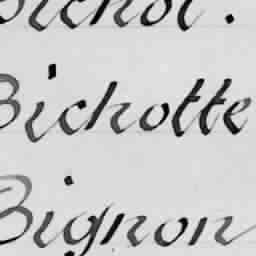 Bichot.
Bichotte
Bignon